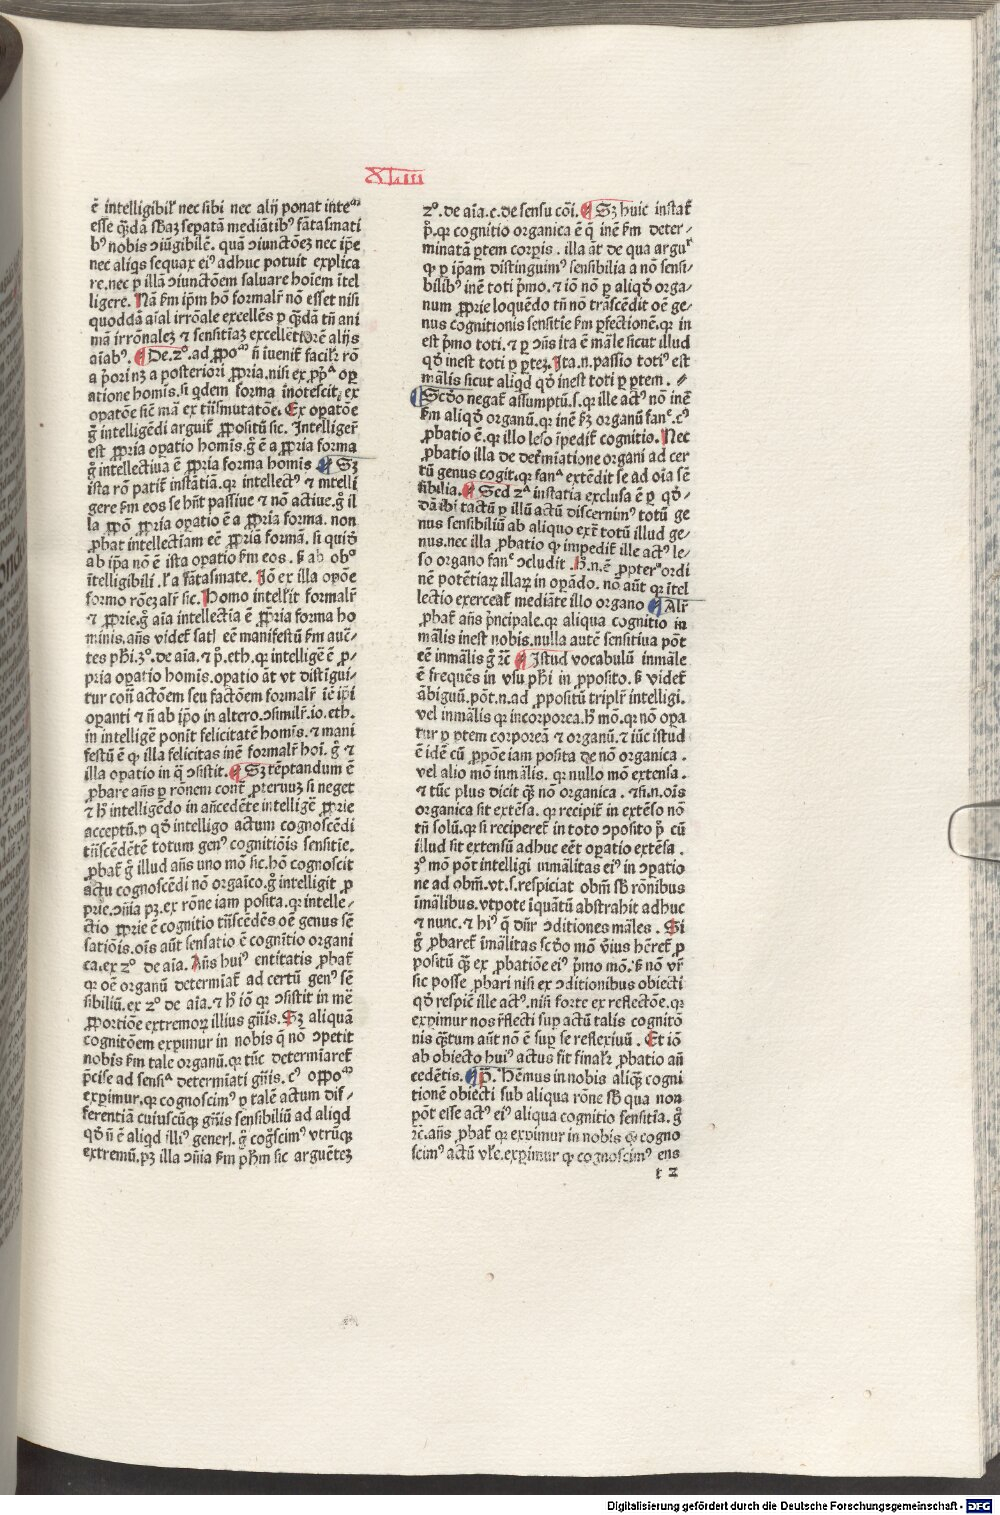 XLIII
ē intelligibil' nec sibi nec alij ponat inte
esse q̄dā sb̄az sepatā mediātibꝰ fātasmati
bꝰ nobis ↄiūgibilē. quā ↄiunctōez nec ip̄e
nec aliqs sequax eiꝰ adhuc potuit explica
re. nec p illā ↄiunctōem saluare hoīem ītel
ligere. Nā ẜm ip̄m hō formalr̄ nō esset nisi
quoddā aīal irrōnale excellēs p q̄dā tn̄ ani
mā irrōnalez ⁊ sensitīaz excellētiorē alijs
aīabꝰ. De. 2º. ad ꝓpoᵐ n̄ īuenit̄ facilr̄ rō
a p̄ori nȝ a posteriori ꝓpria. nisi ex ꝓpⁱᵃ oꝑ
atione homīs. si qdem forma īnotescit ex
oꝑatōe sic̄ mā ex tr̄nsmutatōe. Ex oꝑatōe
g̊ intelligēdi arguit̄ ꝓpositū sic. Intelliger̄
est ꝓpria oꝑatio homīs. g̊ ē a ꝓpria forma
g̊ intellectiua ē ꝓpria forma homīs Sȝ
ista rō patit̄ instātia. qr intellectꝰ ⁊ intelli
gere ẜm eos se hn̄t passiue ⁊ nō actiue. g̊ il
la ꝓpō ꝓpria oꝑatio ē a ꝓpria forma. non
ꝓbat intellectiam eē ꝓpriā formā. si quid
ab ip̄a nō ē ista oꝑatio ẜm eos. ẜ ab obᵒ
īntelligibili. l' a fātasmate. Iō ex illa opōe
formo rōez alr̄ sic. Homo intell'it formalr̄
⁊ ꝓprie. g̊ aīa intellectīa ē ꝓpria forma ho
minis. an̄s videt̄ satꝭ eē manifestū ẜm auc̄
tes ph̄i. 3º. de aīa. ⁊ p̄. eth. qr intelligē ē ꝓ
pria oꝑatio homīs. oꝑatio āt vt distīgui
tur contͣ actōem seu factōem formalr̄ iē ip̄i
oꝑanti ⁊ n̄ ab ip̄o in altero. ↄsimilr̄. io. eth.
in intelligē ponit felicitatē homīs. ⁊ mani
festū ē ꝙ illa felicitas inē formalr̄ hoī. g̊ ⁊
illa oꝑatio in q̄ ↄsistit. Sȝ tēptandum ē
ꝓbare an̄s p rōnem contͣ ꝓteruuȝ si neget
⁊ hͥ intelligēdo in an̄cedēte intelligē ꝓprie
acceptū. p qd̓ intelligo actum cognoscēdi
tr̄nscēdētē totum genꝰ cognitiōis sensitīe.
ꝓbat̄ g̊ illud an̄s uno mō sic. hō cognoscit
actu cognoscēdi nō orgaīco. g̊ intelligit ꝓ
prie. ↄn̄ia pȝ. ex rōne iam posita. qr intelle
ctio ꝓprie ē cognitio tr̄nscēdēs oē genus sē
satiōis. oīs aūt sensatio ē cognitio organi
ca. ex 2º de aīa. An̄s huiꝰ entitatis ꝓbat̄
qr oē organū determiat̄ ad certū genꝰ sē
sibiliū. ex 2º de aīa. ⁊ hͥ iō qr ↄsistit in mē
ꝓportiōe extremoꝝ illius gn̄is. Sȝ aliquā
cognitōem experimur in nobis q̄ nō ↄpetit
nobis ẜm tale organū. qr tūc determiaret̄
p̄cise ad sensiᵃ determiati gn̄is. cꝰ oppoᵐ
experimur. qr cognoscimꝰ p talē actum dif
ferentiā cuiuscūqꝫ gn̄is sensibiliū ad aliqd
qd̓ n̄ ē aliqd illiꝰ generꝭ. g̊ cog̊scimꝰ vtrūqꝫ
extremū. pȝ illa ↄn̄ia ẜm ph̄m sic arguētez
2º. de aīa. c. de sensu cōi. Sȝ huic instat̄
p̄. qr cognitio organica ē q̄ inē ẜm deter
minatā ꝑtem corꝑis. illa āt de qua arguʳ
ꝙ ꝑ ip̄am distinguimꝰ sensibilia a nō sensi
bilibꝰ inē toti p̄mo. ⁊ iō nō ꝑ aliqd̓ orga
num ꝓprie loquēdo tn̄ nō trāscēdit oē ge
nus cognitionis sensitīe ẜm ꝑfectionē. qr in
est p̄mo toti. ⁊ ꝑ ↄn̄s ita ē māle sicut illud
qd̓ inest toti ꝑ ꝑtez. Ita. n. passio totiꝰ est
mālis sicut aliqd qd̓ inest toti ꝑ ꝑtem.
Scd̓o negat̄ assumptū. s. qr ille actꝰ nō inē
ẜm aliqd̓ organū. qr inē ẜꝫ organū fanᵉ. cꝰ
ꝓbatio ē. qr illo leso īpedit̄ cognitio. Nec
ꝓbatio illa de determiatione organi ad cer
tū genus cogit. qr fanᵃ extēdit se ad oīa sē
sibilia. Scd 2ᵃ instatia exclusa ē ꝑ qd̓
dā ibi tactū ꝑ illū actū discernimꝰ totū ge
nus sensibiliū ab aliquo extͣ totū illud ge
nus. nec illa ꝓbatio ꝙ impedit̄ ille actꝰ le
so organo fanᵉ ↄcludit. H̄. n. ē ꝓpter ordi
nē potētiaꝝ illaꝝ in oꝑādo. nō aūt qr ītel
lectio exerceat̄ mediāte illo organo Alr̄
ꝓbat̄ an̄s p̄ncipale. qr aliqua cognitio in
mālis inest nobis. nulla autē sensitiua pōt
eē inmālis g̊ ⁊c̄ Istud vocabulū inmāle
ē frequēs in vsu ph̄i in ꝓposito. ẜ videt̄
ābiguū. pōt. n. ad ꝓpositū triplr̄ intelligi.
vel inmālis qr incorporea. hͦ mō. qr nō oꝑa
tur ꝑ ꝑtem corporeā ⁊ organū. ⁊ tūc istud
ē idē cū ꝓpōe iam posita de nō organica.
vel alio mō inmālis. qr nullo mō extensa.
⁊ tūc plus dicit qꝫ nō organica. ⁊si. n. oīs
organica sit extēsa. qr recipit̄ in extēso nō
tn̄ solū. qr si reciperet̄ in toto ↄposito p̄ cū
illud sit extensū adhuc eēt oꝑatio extēsa.
3º mō pōt intelligi inmālitas eiꝰ in ↄꝑatio
ne ad obm̄. vt. s. respiciat obm̄ sb̄ rōnibus
īmālibus. vtpote īquātū abstrahit ab hic
⁊ nunc. ⁊ hiꝰ q̄ dn̄r ↄditiones māles. Si
g̊ ꝓbaret̄ īmālitas scd̓o mō v̓ius hēret̄ ꝓ
positū qꝫ ex ꝓbatiōe eiꝰ p̄mo mō. ẜ nō vr̄
sic posse ꝓbari nisi ex ↄditionibus obiecti
qd̓ respic̄ ille actꝰ. nisi forte ex reflectōe. qr
experimur nos r̄flecti suꝑ actū talis cognitō
nis qꝫtum aūt nō ē suꝑ se reflexiuū. Et iō
ab obiecto huiꝰ actus fit finalr̄ ꝓbatio an̄
cedētis. P̄. Hēmus in nobis aliqꝫ cogni
tionē obiecti sub aliqua rōne sb̄ qua non
pōt esse actꝰ eiꝰ aliqua cognitio sensitīa. g̊
⁊c. an̄s ꝓbat̄ qr experimur in nobis ꝙ cogno
scimꝰ actū vl'e. experimur ꝙ cognoscimꝰ ens
t 2
Digitalisierung gefördert durch die Deutsche Forschungsgemeinschaft - DFG